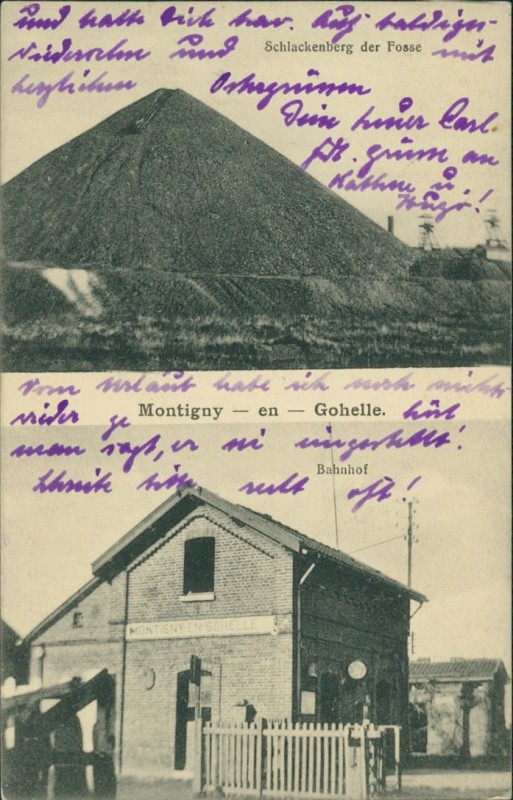 und halte Dich brav. Auf baldiges
Wiedersehn und mit
Schlackenberg der Fosse
herzlichen Ostergrüssen
Dein treuer Carl
grüsse an
u.
Hugo!
Vom Urlaub habe ich noch nichts
wieder gehört
Montigny — en — Gohelle.
man sagt, er sei eingestellt!
Bahnhof
Schreibe bitte recht oft!
MONTIGNY-EN-GOHELLE